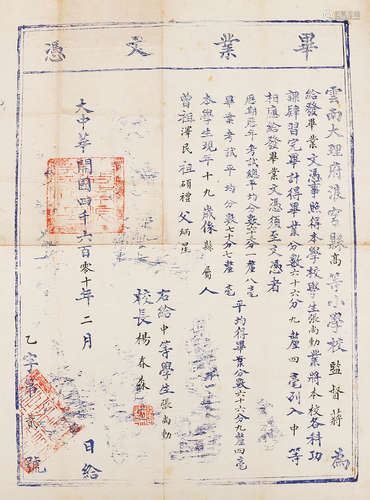 畢業文憑
雲南大理府浪穹縣高等小學校監督蔣 為
給發畢業文憑事照得本學校學生張尚勳業將本校各科功
課肄習完畢計得畢業分數六十六分九釐四毫列入中等
相應給發畢業文憑須至文憑者
歷期歷年考試總平均分數六十六分一釐八毫
畢業考試平均分數七十分七釐 毫
平均得畢業分數六十六分九釐四毫
本學生現年十九歲係 縣屬人
曾祖澤民 祖碩禮 父炳星
右給中等學生張尚勳
校長楊春
大中華開國四千六百零十年二月 日給
乙字第 號